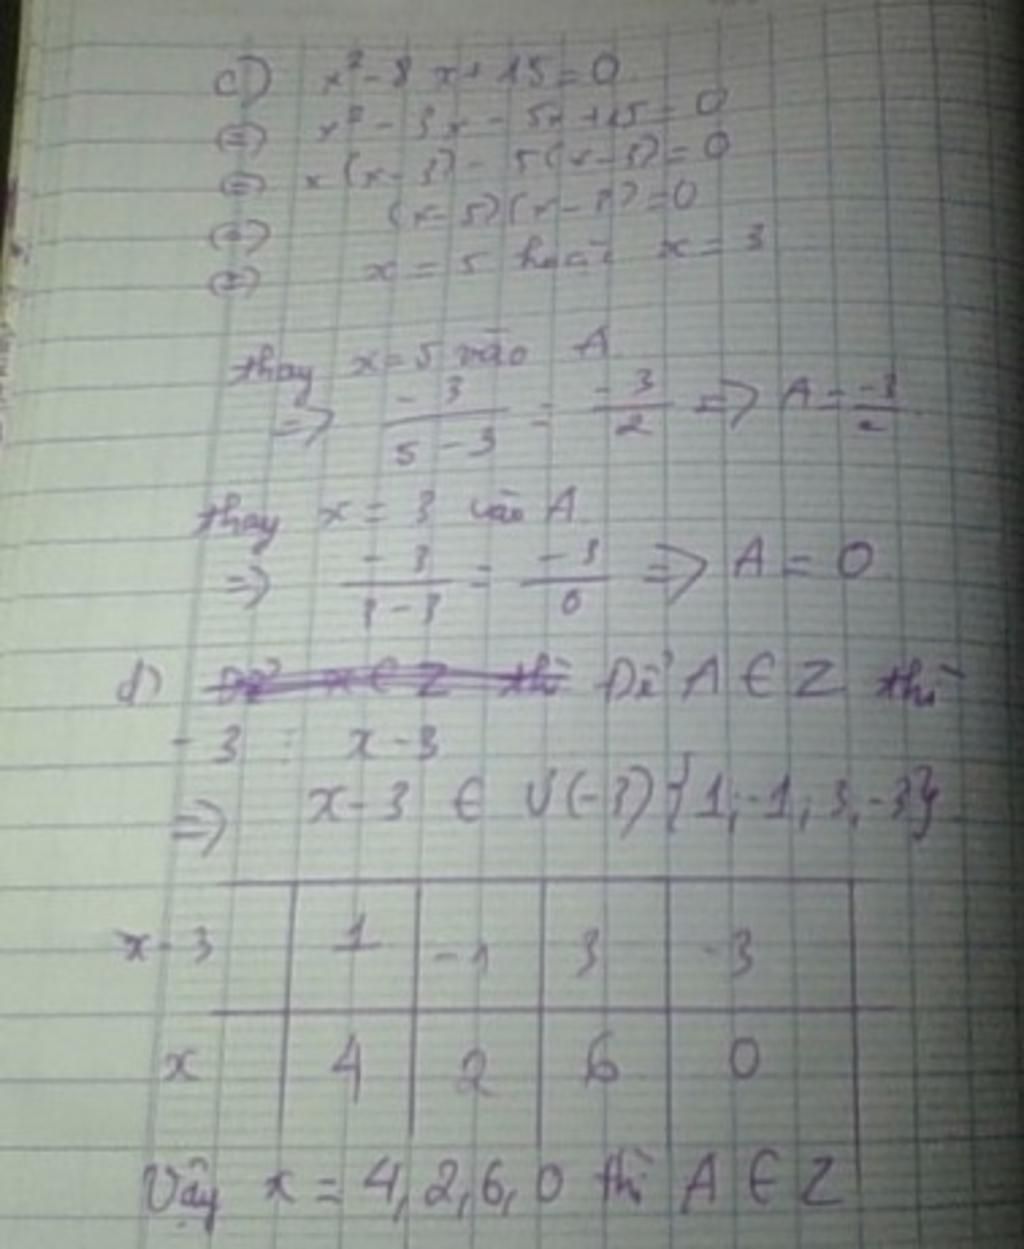 c) x² - 8x + 15 = 0
(=) x² - 3x - 5x + 15 = 0
(=) x(x-3) - 5(x-3) = 0
(=) (x-5)(x-3) = 0
(=) x = 5 hoặc x = 3
thay x = 5 vào A
=> -3/(5-3) = -3/2 => A = -3/2
thay x = 3 vào A
=> -3/(3-3) = -3/0 => A = 0
d) Để x ∈ Z thì Để A ∈ Z thì
-3 ⋮ x-3
=> x-3 ∈ Ư(-3) {1, -1, 3, -3}
x-3 1 -1 3 -3
x 4 2 6 0
Vậy x = 4, 2, 6, 0 thì A ∈ Z